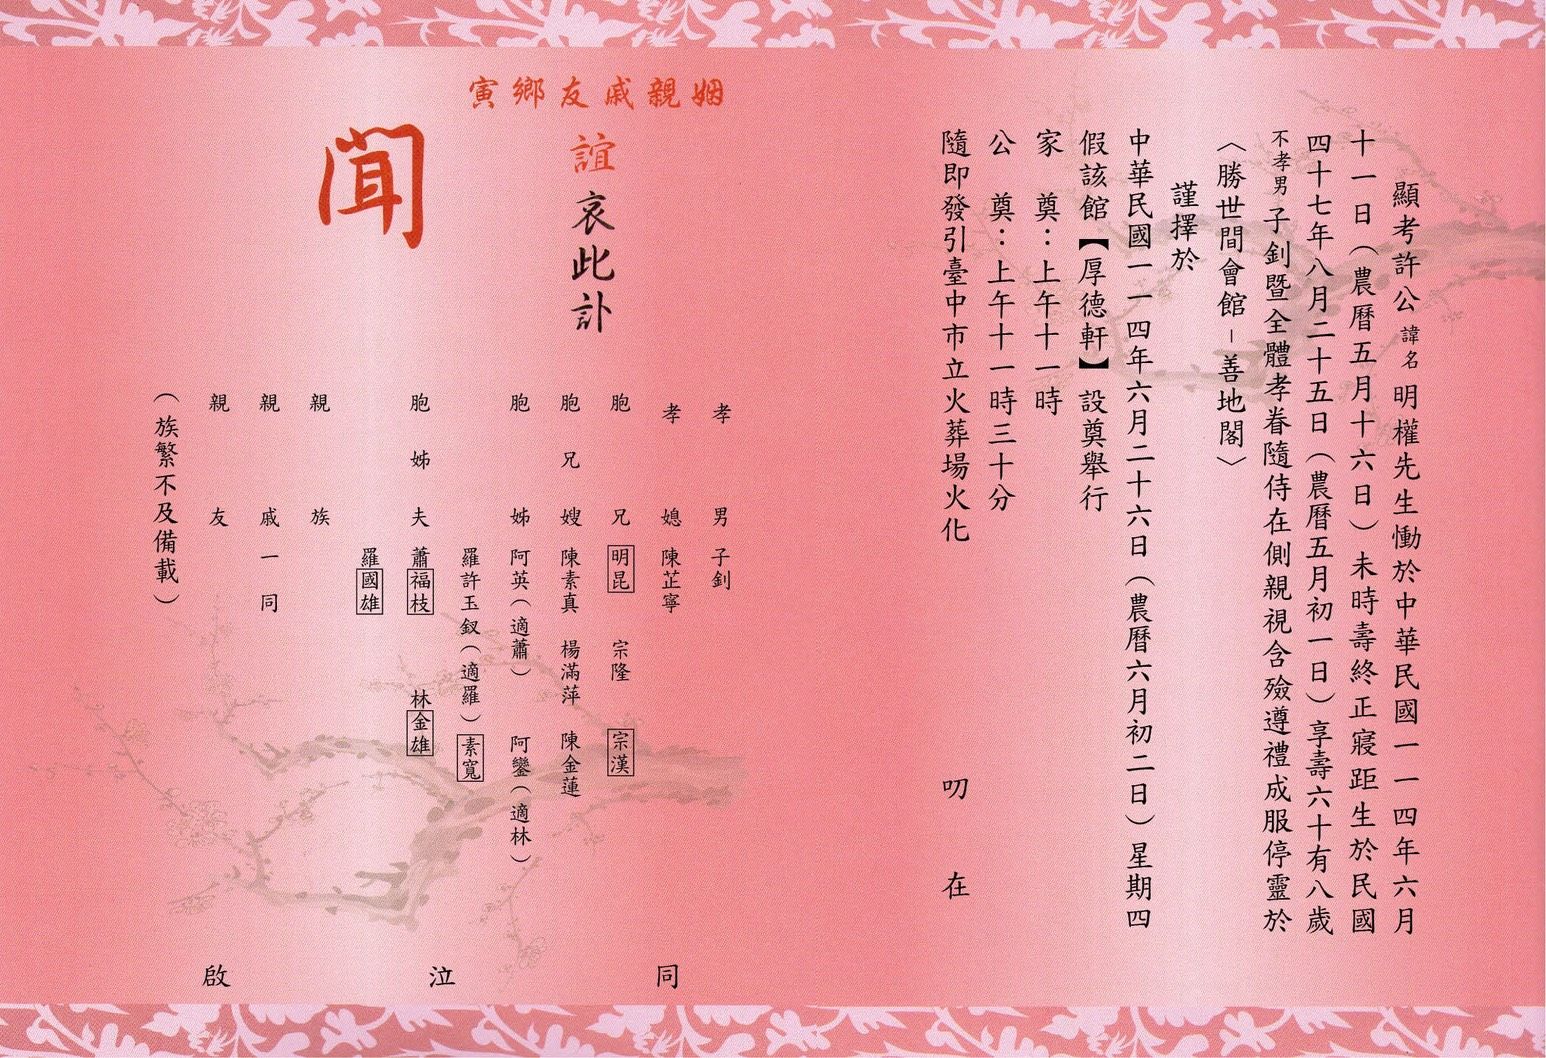 顯考許公諱名明權先生慟於中華民國一一四年六月
十一日（農曆五月十六日）未時壽終正寢距生於民國
四十七年八月二十五日（農曆五月初一日）享壽六十有八歲
不孝男子釗暨全體孝眷隨侍在側親視含殮遵禮成服停靈於
〈勝世間會館－善地閣〉
謹擇於
中華民國一一四年六月二十六日（農曆六月初二日）星期四
假該館【厚德軒】設奠舉行
家　奠：上午十一時
公　奠：上午十一時三十分
隨即發引臺中市立火葬場火化　叨　在
姻親戚友鄉寅
誼哀此訃
聞
孝男　子釗
孝媳　陳芷寧
胞兄　明昆　宗隆　宗漢
胞兄嫂　陳素真　楊滿萍　陳金蓮
胞姊　阿英（適蕭）　阿鑾（適林）
羅許玉釵（適羅）素寬
胞姊夫　蕭福枝　林金雄
羅國雄
親族
親戚一同
親友
（族繁不及備載）
同泣啟